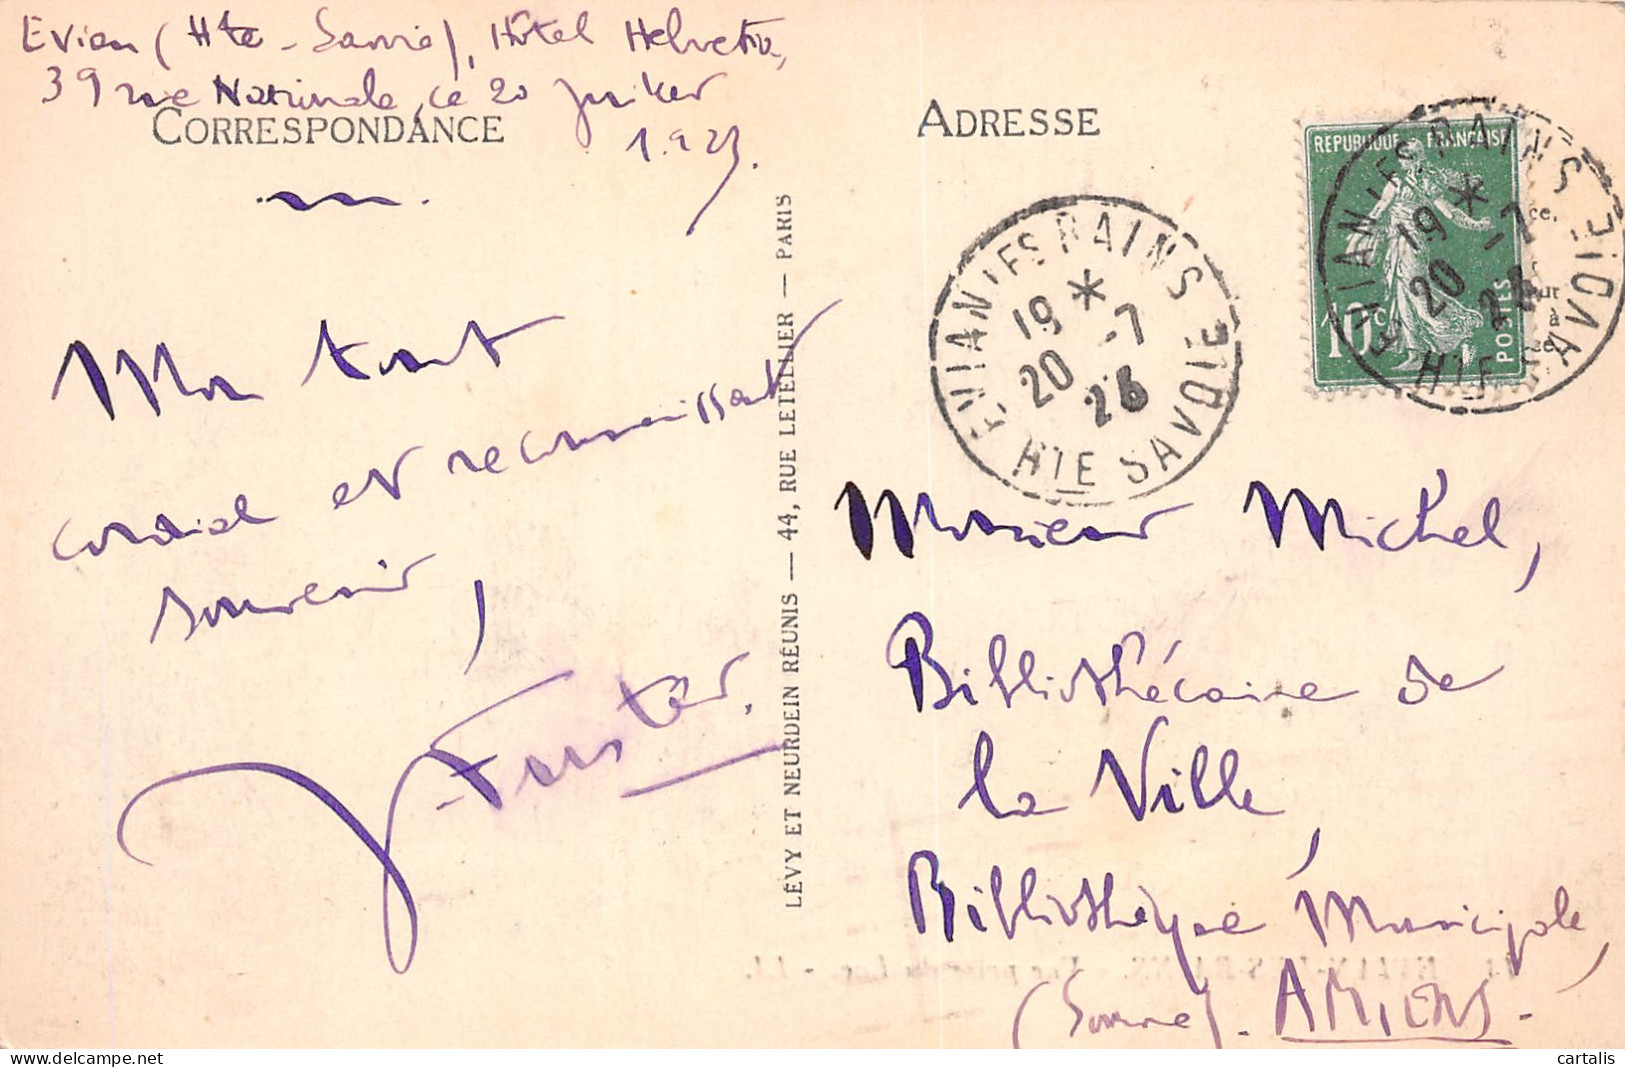 Evian (Hte-Savoie), Hôtel Helvetia,
39 rue Nationale, ce 20 juillet
1923.
CORRESPONDANCE
Mon tout
cordial et reconnaissant
souvenir,
LÉVY ET NEURDEIN RÉUNIS — 44, RUE LETELLIER — PARIS
ADRESSE
REPUBLIQUE FRANÇAISE
10c
POSTES
EVIAN LES BAINS
19 *
20 -7
23
HTE SAVOIE
EVIAN LES BAINS
19 *
20 -7
HTE SAVOIE
Monsieur Michel,
Bibliothécaire de
la Ville,
Bibliothèque Municipale,
(Somme). AMIENS.
EVIAN-LES-BAINS. - Vue prise du Lac. - LL.
cartalis